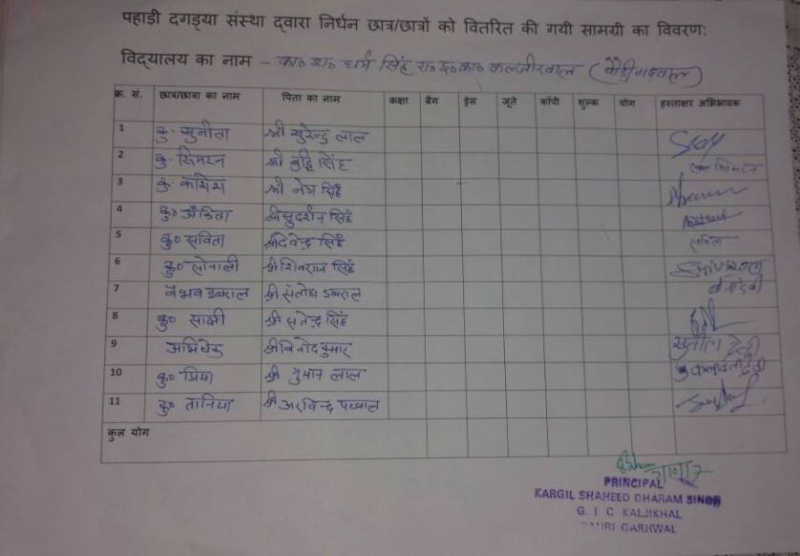 पहाड़ी दगड्या संस्था द्वारा निर्धन छात्र/छात्रों को वितरित की गयी सामग्री का विवरण:
विद्यालय का नाम – का० श० धर्म सिंह रा० इ० का० कलजीखाल (पौड़ी गढ़वाल)
क्र. सं. छात्र/छात्रा का नाम पिता का नाम कक्षा बैग ड्रेस जूते कॉपी शुल्क योग हस्ताक्षर अभिभावक
1 कु. सुनीता श्री सुरेन्द्र लाल
2 कु. सिमरन श्री बुद्धि सिंह
3 कु. कशिश श्री मेघ सिंह
4 कु० अंकिता श्री सुदर्शन सिंह
5 कु० सविता श्री देवेन्द्र सिंह सविता
6 कु० सोनाली श्री शिवराज सिंह
7 वैभव डबराल श्री संतोष डबराल
8 कु० साक्षी श्री सतेन्द्र सिंह
9 अभिषेक श्री विनोद कुमार सुशीला देवी
10 कु० प्रिया श्री गुमान लाल
11 कु० तानिया श्री अरविन्द पयाल
कुल योग
PRINCIPAL
KARGIL SHAHEED DHARAM SINGH
G. I. C KALJIKHAL
PAURI GARHWAL